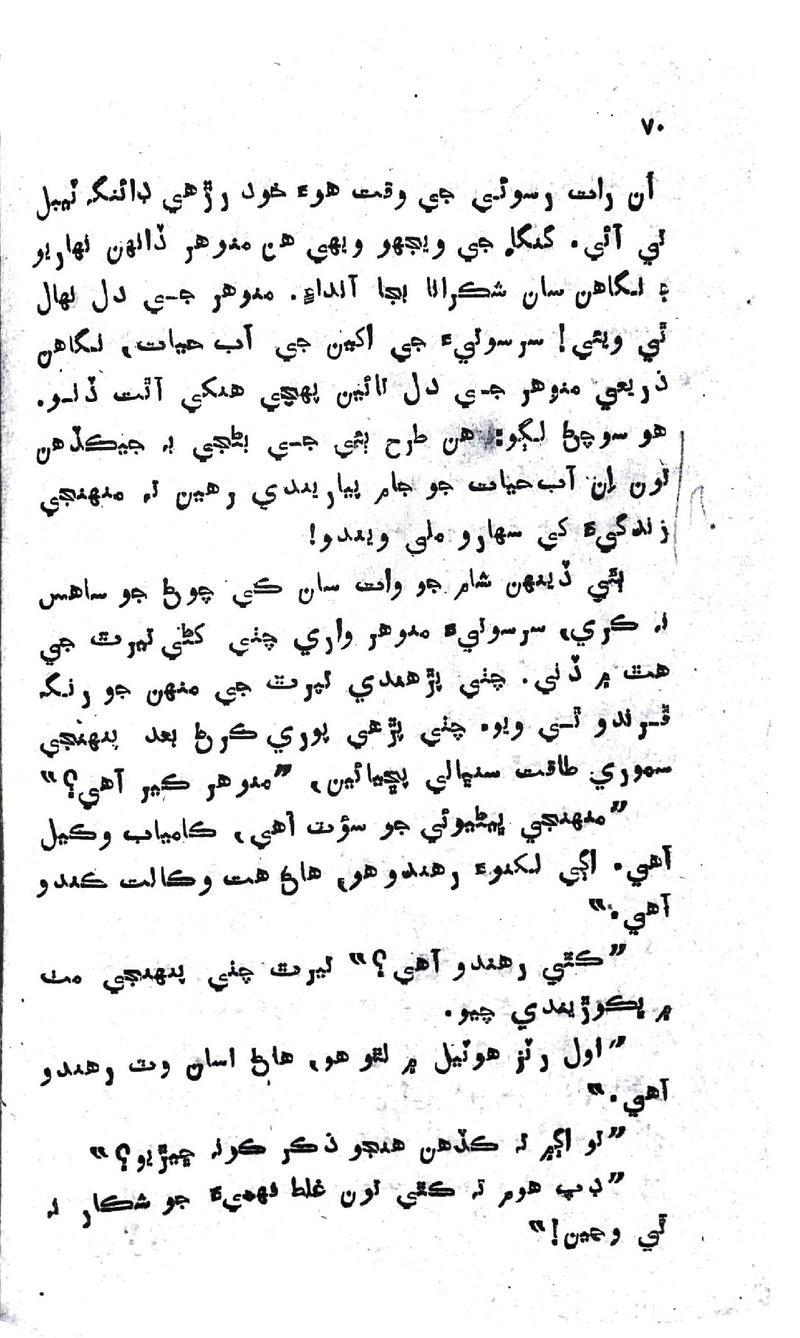 ٧٠
اُن رات رسوئي جي وقت هوءَ خود رڙهي ڊائنگ ٽيبل
تي آئي. گنگا جي ويجهو ويهي هن منوهر ڏانهن نهاريو
۽ نگاهن سان شڪرانا بجا آندا. منوهر جي دل نهال
ٿي ويئي! سرسوتيءَ جي اکين جي آب حيات، نگاهن
ذريعي منوهر جي دل تائين پهچي هنکي آٿت ڏنو.
هو سوچڻ لڳو: هن طرح ٻئي جي بڻجي به جيڪڏهن
تون اِن آب حيات جو جام پياريندي رهين ته منهنجي
زندگيءَ کي سهارو ملي ويندو!
ٻئي ڏينهن شام جو وات سان ڪي چوڻ جو ساهس
نه ڪري، سرسوتيءَ منوهر واري چٺي کڻي تيرٿ جي
هٿ ۾ ڏني. چٺي پڙهندي تيرٿ جي منهن جو رنگ
ڦرندو ٿي ويو. چٺي پڙهي پوري ڪرڻ بعد پنهنجي
سموري طاقت سنڀالي پڇيائين، ”منوهر ڪير آهي؟“
”منهنجي ڀيڻيوئي جو سؤٽ آهي، ڪامياب وڪيل
آهي. اڳي لکنوءَ رهندو هو، هاڻ هت وڪالت ڪندو
آهي.“
”ڪٿي رهندو آهي؟“ تيرٿ چٺي پنهنجي مٺ
۾ ڀڪوڙيندي چيو.
”اول رٽز هوٽيل ۾ لٿو هو، هاڻ اسان وٽ رهندو
آهي.“
”تو اڳ۾ ته ڪڏهن هنجو ذڪر ڪونه ڇيڙيو؟“
”ڊپ هوم ته ڪٿي تون غلط فهميءَ جو شڪار نه
ٿي وڃين!“